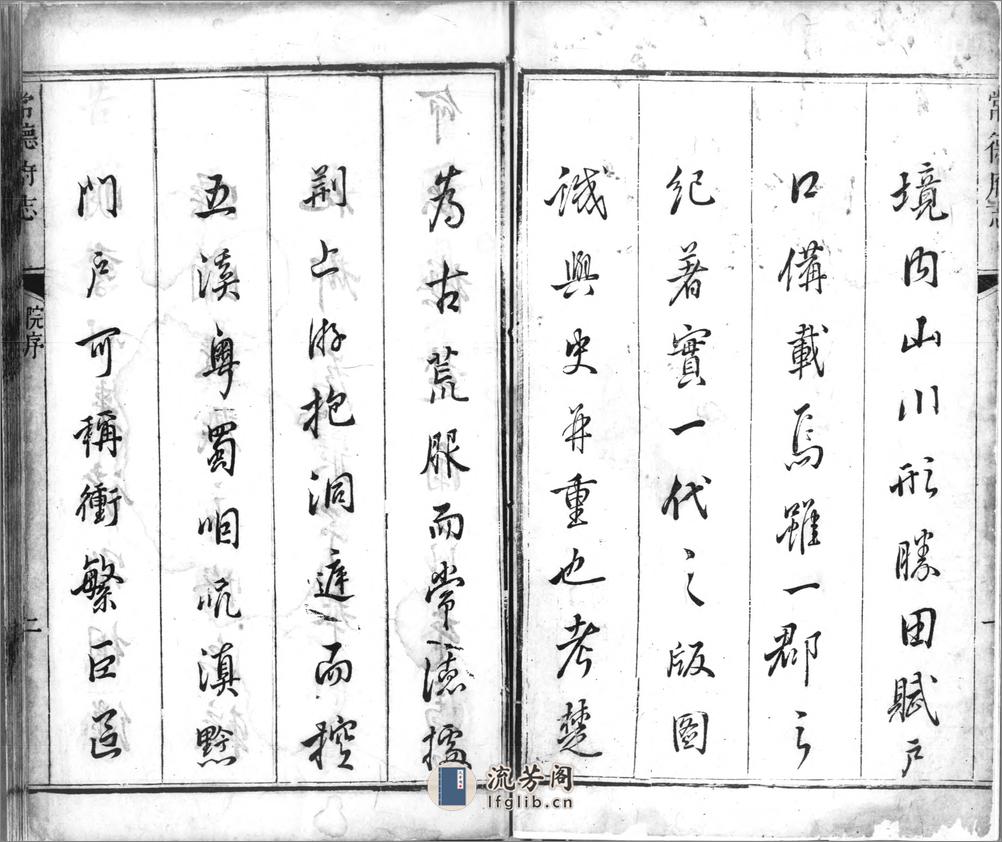 常德府志
境內山川形勝田賦戶
口備載焉雖一郡之
紀著實一代之版圖
誠與史并重也考楚
為古荒服而常德據
荊上游抱洞庭而控
五溪粵蜀咽吭滇黔
門戶可稱衝繁巨邑
常德府志
院序
二
流芳阁
lfglib.cn